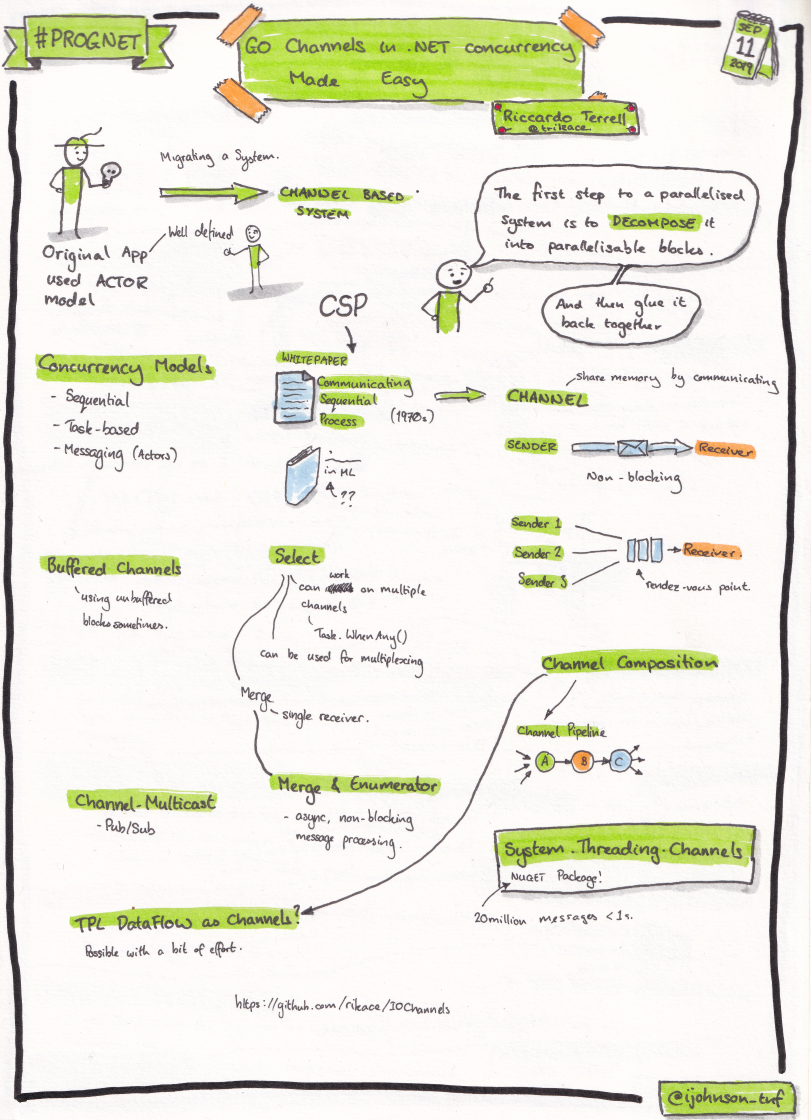 #PROGNET
GO Channels in .NET concurrency
Made Easy
SEP
11
2019
Riccardo Terrell
@trikace
Migrating a System.
CHANNEL BASED
SYSTEM
Original App
used ACTOR
model
Well defined
The first step to a parallelised
system is to DECOMPOSE it
into parallelisable blocks.
And then glue it
back together
CSP
WHITEPAPER
Communicating
Sequential
Process
(1970s)
in ML
??
Concurrency Models
- Sequential
- Task-based
- Messaging (Actors)
CHANNEL
share memory by communicating
SENDER
Receiver
Non-blocking
Sender 1
Sender 2
Sender 3
Receiver.
rendez-vous point.
Buffered Channels
using unbuffered
blocks sometimes.
Select
work
can on multiple
channels
Task.WhenAny()
can be used for multiplexing
Merge
- single receiver.
Merge & Enumerator
- async, non-blocking
message processing.
Channel Composition
Channel Pipeline
A
B
C
Channel-Multicast
- Pub/Sub
System.Threading.Channels
NUGET Package!
20million messages < 1s.
TPL DataFlow as Channels?
Possible with a bit of effort.
https://github.com/rikace/IOChannels
@ijohnson_tnf